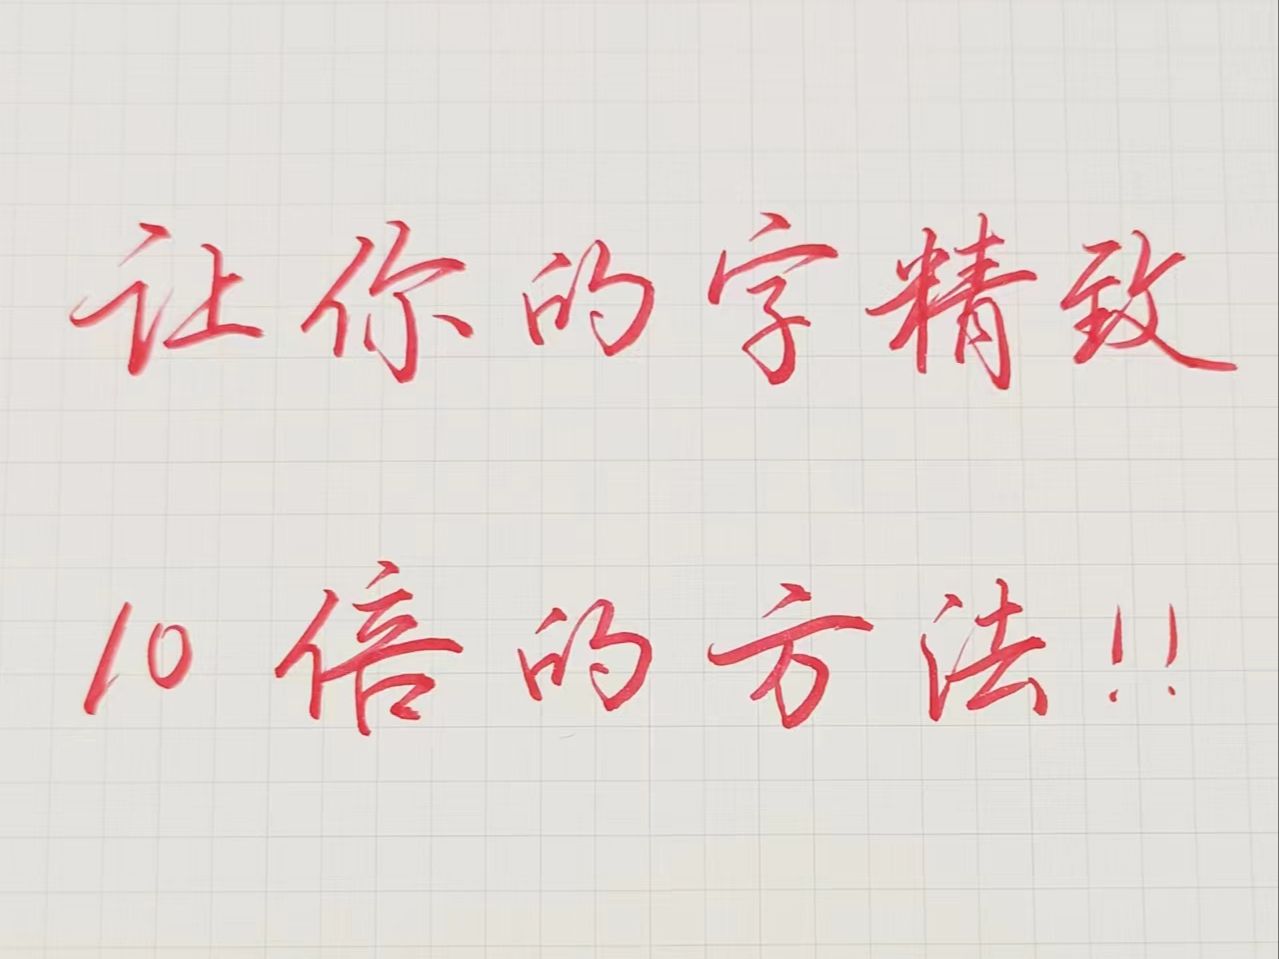 让你的字精致
10倍的方法!!